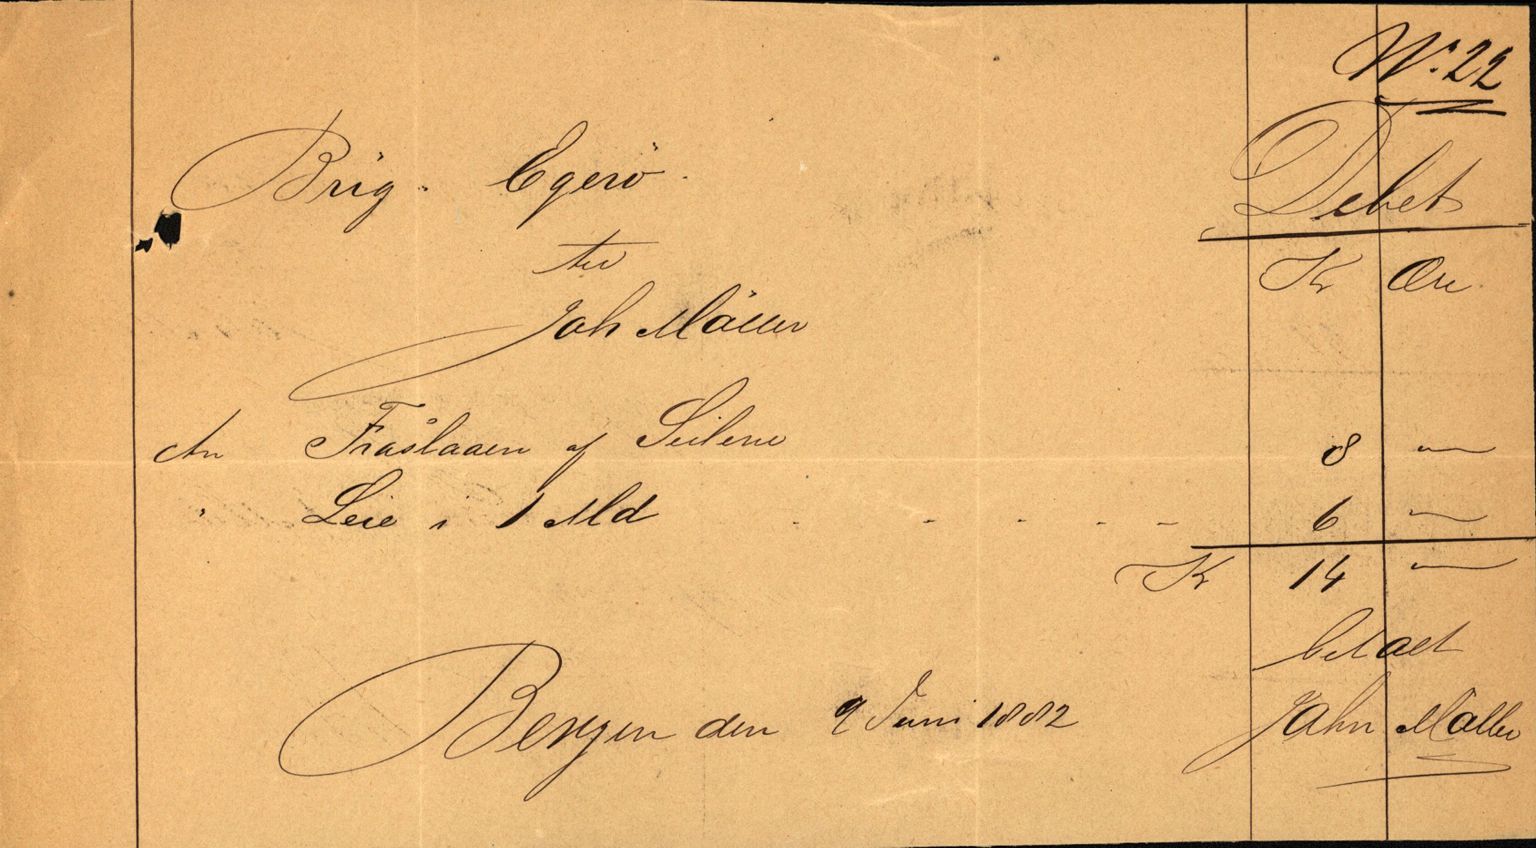 No 22
Brig. Egerö.
Debet
til
Kr Øre
Joh Möller
An Fraslaaen af Seilene 8 —
" Leie i 1 Md - - - - - 6 —
Kr 14 —
betalt
Bergen den 9 Juni 1882
John Möller